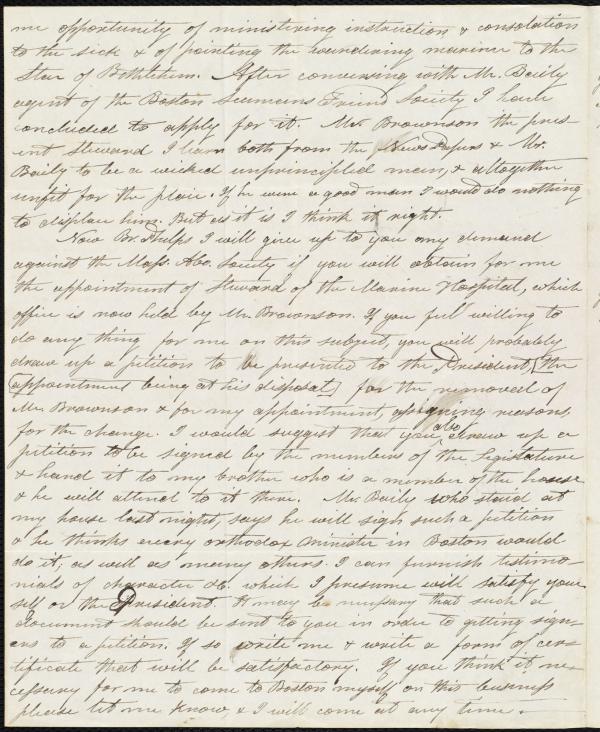 me opportunity of ministering instruction & consolation
to the sick & of pointing the wandering mariner to the
Star of Bethlehem. After conversing with Mr. Baily
agent of the Boston Seamens Friend Society I have
concluded to apply for it. Mr. Brownson the pres-
ent Steward I learn both from the News Papers & Mr.
Baily to be a wicked unprincipled man, & altogether
unfit for the place. If he were a good man I would do nothing
to displace him. But as it is I think it right.
Now Br. Phelps I will give up to you any demand
against the Mass. Abo. Society if you will obtain for me
the appointment of Steward of the Marine Hospital, which
office is now held by Mr. Brownson. If you feel willing to
do any thing for me on this subject, you will probably
draw up a petition to be presented to the President, [the
appointment being at his disposal] for the removal of
Mr. Brownson & for my appointment, assigning reasons
for the change. I would suggest that you also draw up a
petition to be signed by the members of the Legislature
& hand it to my brother who is a member of the house
& he will attend to it there. Mr. Baily who staid at
my house last night, says he will sign such a petition
& he thinks every orthodox minister in Boston would
do it; as well as many others. I can furnish testimo-
nials of character &c. which I presume will satisfy your
self or the President. It may be necessary that such a
document should be sent to you in order to getting sign-
ers to a petition. If so write me & write a form of cer-
tificate that will be satisfactory. If you think it ne-
cessary for me to come to Boston myself on this business
please let me know, & I will come at any time.